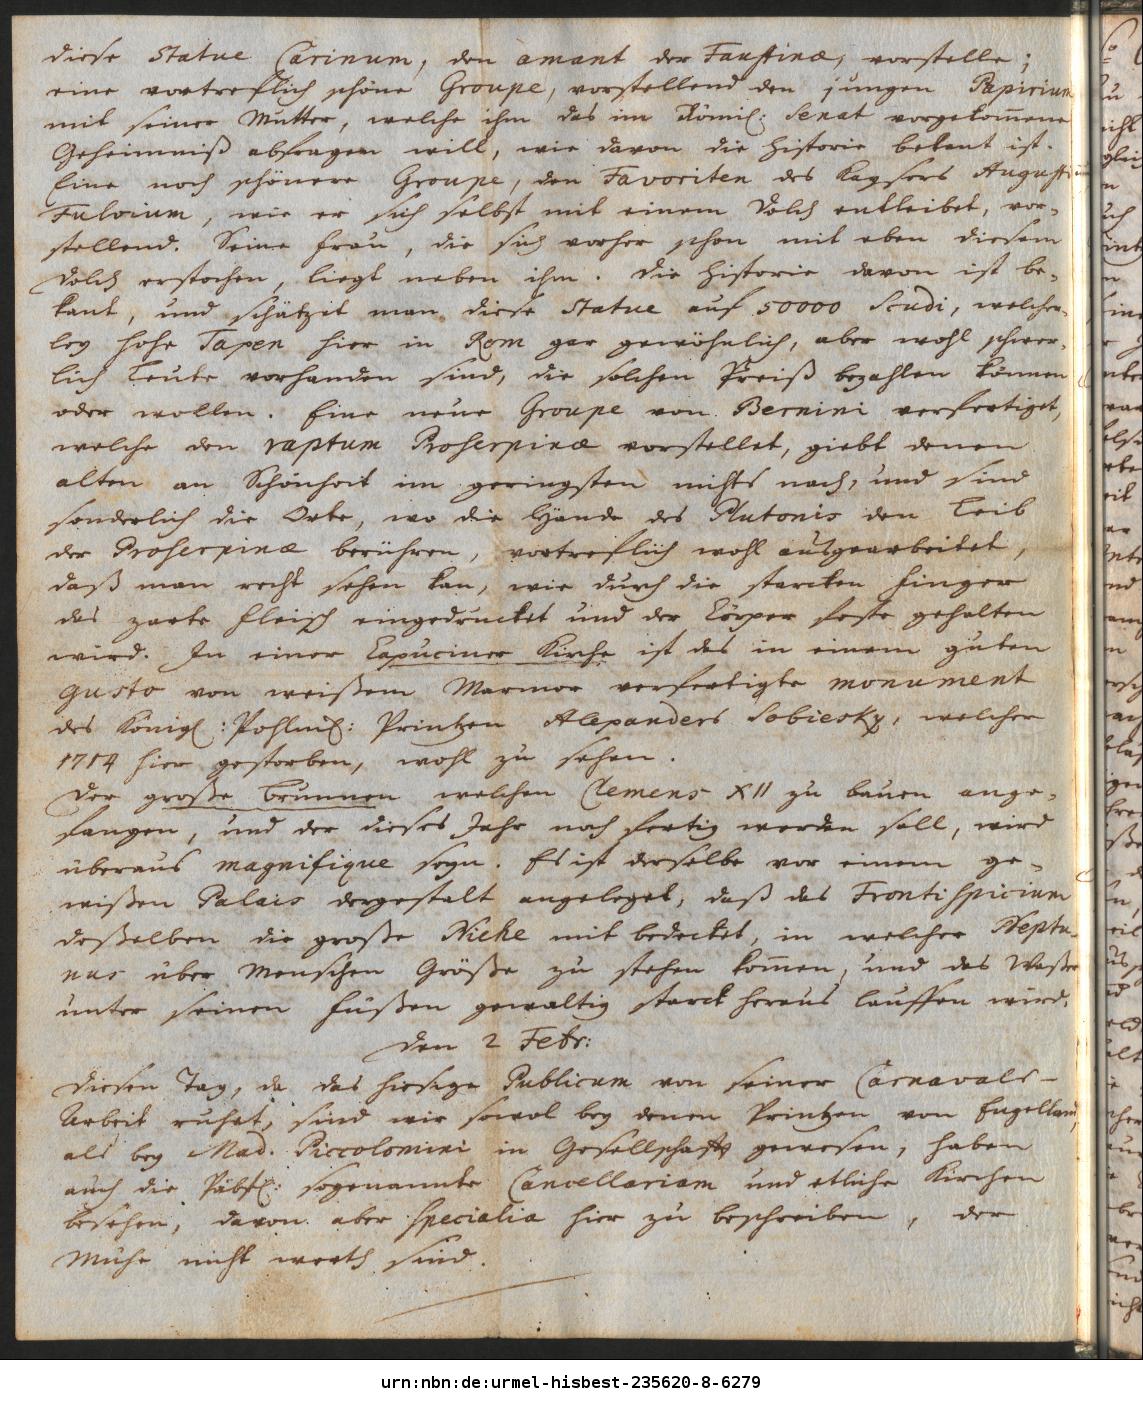 diese Statue Carinum, den amant der Faustinæ, vorstelle;
eine vortreflich schöne Groupe, vorstellend den jungen Papirium
mit seiner Mutter, welche ihm das im Römis: Senat vorgekom̄ene
Geheimniß abfragen will, wie davon die Historie bekent ist.
Eine noch schönere Groupe, den Favoriten des Kaysers Augusti
Fulvium, wie er sich selbst mit einem Dolch entleibet, vor-
stellend. Seine Frau, die sich vorher schon mit eben diesem
Dolch erstochen, liegt neben ihm. Die Historie davon ist be-
kant, und schätzet man diese Statue auf 50000 Scudi, welcher-
ley hohe Taxen hier in Rom gar gewöhnlich, aber wohl schwer-
lich Leute vorhanden sind, die solchen Preiß bezahlen können
oder wollen. Eine neue Groupe von Bernini verfertiget,
welche den raptum Proserpinæ vorstellet, giebt denen
alten an Schönheit im geringsten nichts nach, und sind
sonderlich die Orte, wo die Hände des Plutonis den Leib
der Proserpinæ berühren, vortreflich wohl ausgearbeitet,
daß man recht sehen kan, wie durch die starcken Finger
das zarte Fleisch eingedrucket und der Cörper feste gehalten
wird. In einer Capuciner Kirche ist das in einem guten
gusto von weißem Marmor verfertigte monument
des Königl: Pohlnis: Printzen Alexanders Sobiesky, welcher
1714 hier gestorben, wohl zu sehen.
Der große Brunnen welchen Clemens XII zu bauen ange-
fangen, und der dieses Jahr noch fertig werden soll, wird
überaus magnifique seyn. Es ist derselbe vor einem ge-
wißen Palais dergestalt angeleget, daß das Frontispicium
deßelben die große Niche mit bedecket, in welcher Neptu-
nus über Menschen Größe zu stehen kom̄en, und das Waßer
unter seinen Füßen gewaltig starck heraus lauffen wird.
Den 2 Febr:
Diesen Tag, da das hiesige Publicum von seiner Carnavals-
Arbeit ruhet, sind wir sowol bey denen Printzen von Engelland,
als bey Mad. Piccolomini in Gesellschafft gewesen, haben
auch die Päbstl: sogenannte Cancellariam und etliche Kirchen
besehen, davon aber specialia hier zu beschreiben, der
Mühe nicht werth sind.
urn:nbn:de:urmel-hisbest-235620-8-6279